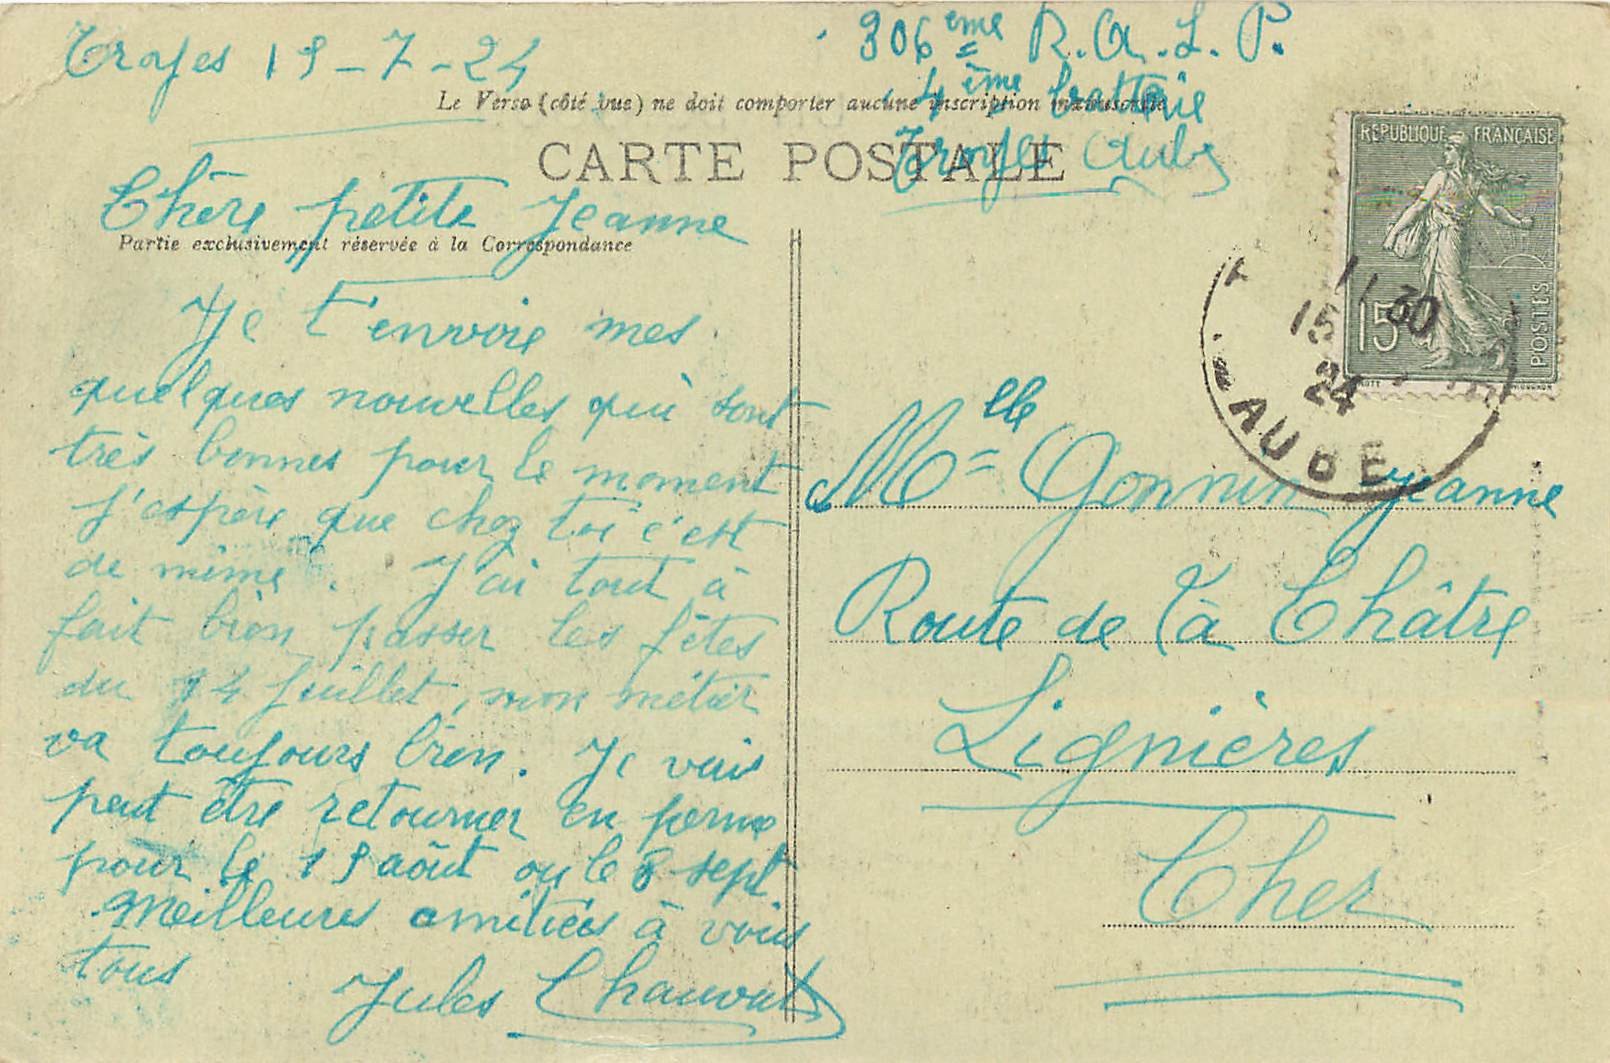 Troyes 15-7-24
306ème R.A.L.P.
4ème batterie
Troyes Aube
Le Verso (côté vue) ne doit comporter aucune inscription manuscrite
CARTE POSTALE
Chère petite Jeanne
Partie exclusivement réservée à la Correspondance
Je t'envoie mes
quelques nouvelles qui sont
très bonnes pour le moment
j'espère que chez toi c'est
de même. J'ai tout à
fait bien passer les fêtes
du 14 Juillet, mon métier
va toujours bien. Je vais
peut être retourner en perme
pour le 15 août ou le 8 sept
Meilleures amitiées à vous
tous
Jules Chauvat
RÉPUBLIQUE FRANÇAISE
15
POSTES
11 30
15
24
AUBE
Melle Gonnin Jeanne
Route de La Châtre
Lignières
Cher